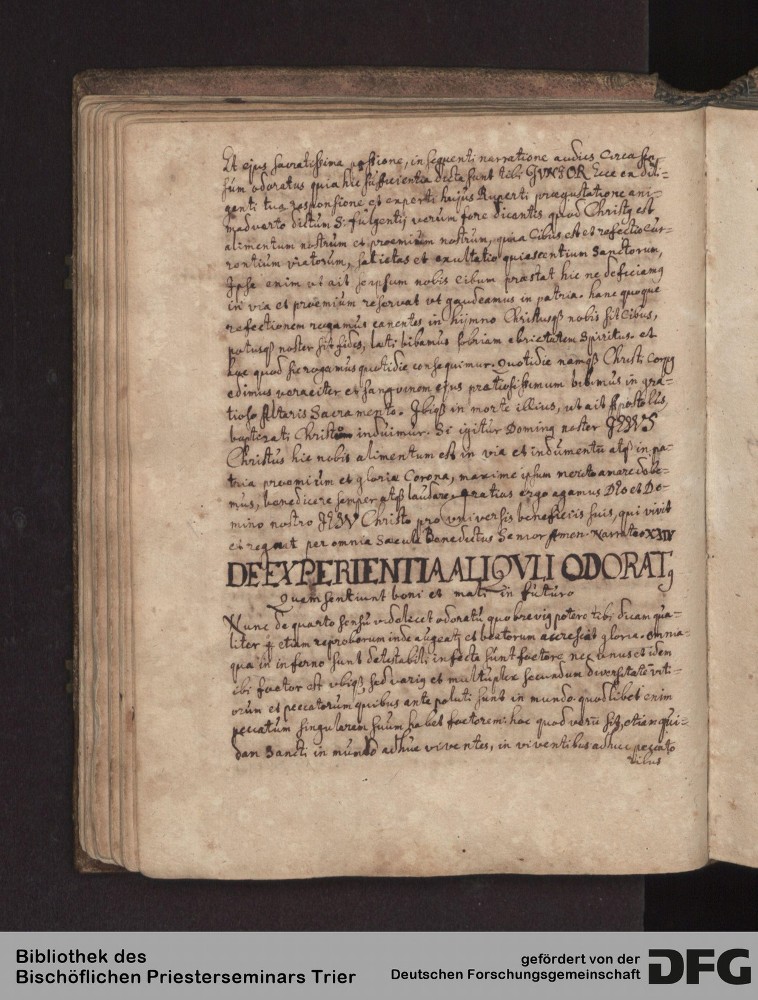 Et ejus sacratissima passione, in sequenti narratione audies Circa sen-
sum odoratus quia hic sufficientia dicta sunt tibi IVNIOR Ecce ex dili-
genti tua responsione et experti hujus Ruperti praegustatione ani-
madverto dictum S. fulgentij verum fore dicentis quod Christꝰ est
alimentum nostrum et praemium nostrum, quia Cibus est et refectio cur-
rentium viatorum, satietas et exultatio quiescentium Sanctorum,
Ipse enim ut ait seipsum nobis Cibum praestat hic ne deficiamꝰ
in via et praemium reservat vt gaudeamus in patria. hanc quoque
refectionem rogamus canentes in hijmno Christusqꝫ nobis sit Cibus,
potusqꝫ noster sit fides, laeti bibamus sobriam ebrietatem Spiritus. et
hoc quod sic rogamus quotidie consequimur. Quotidie namqꝫ Christi Corpꝰ
edimus veraciter et sanguinem ejus praetiosissimum bibimus in gra-
tioso Altaris Sacramento. Ibiqꝫ in morte illius, ut ait Apostolus,
baptizati Christum induimur. Si igitur Dominꝰ noster JESVS
Christus hic nobis alimentum est in via et indumentu atqꝫ in pa-
tria praemium et gloriae Corona, maxime ipsum merito amare debe-
mus, benedicere semper atqꝫ laudare, gratias ergo agamus Deo et Do-
mino nostro JESV Christo pro vniversis beneficiis suis, qui vivit
et regnat per omnia Saecula Benedictus Senior Amen. Narratio XXIIIV
DE EXPERIENTIA ALIQVLI ODORATꝰ
Quem sentiunt boni et mali in futuro
Nunc de quarto sensu videlicet odoratu quo brevig potero tibi dicam qua-
liter etiam reproborum inde augeatꝛ et beatorum accrescat gloria. omnia
qua in inferno sunt detestabili infecta sunt foetore nec unus et idem
ibi foetor est vbiqꝫ sed varig et multuplex secundum diversitatē viti-
orum et peccatorum quibus ante poluti sunt in mundo. quodlibet enim
peccatum singularem suum habet foetorem: hoc quod verū sit, etiam qui-
dam Sancti in mundo adhuc viventes, in viventibus adhuc peccato
ribus
Bibliothek des
Bischöflichen Priesterseminars Trier
gefördert von der
Deutschen Forschungsgemeinschaft
DFG